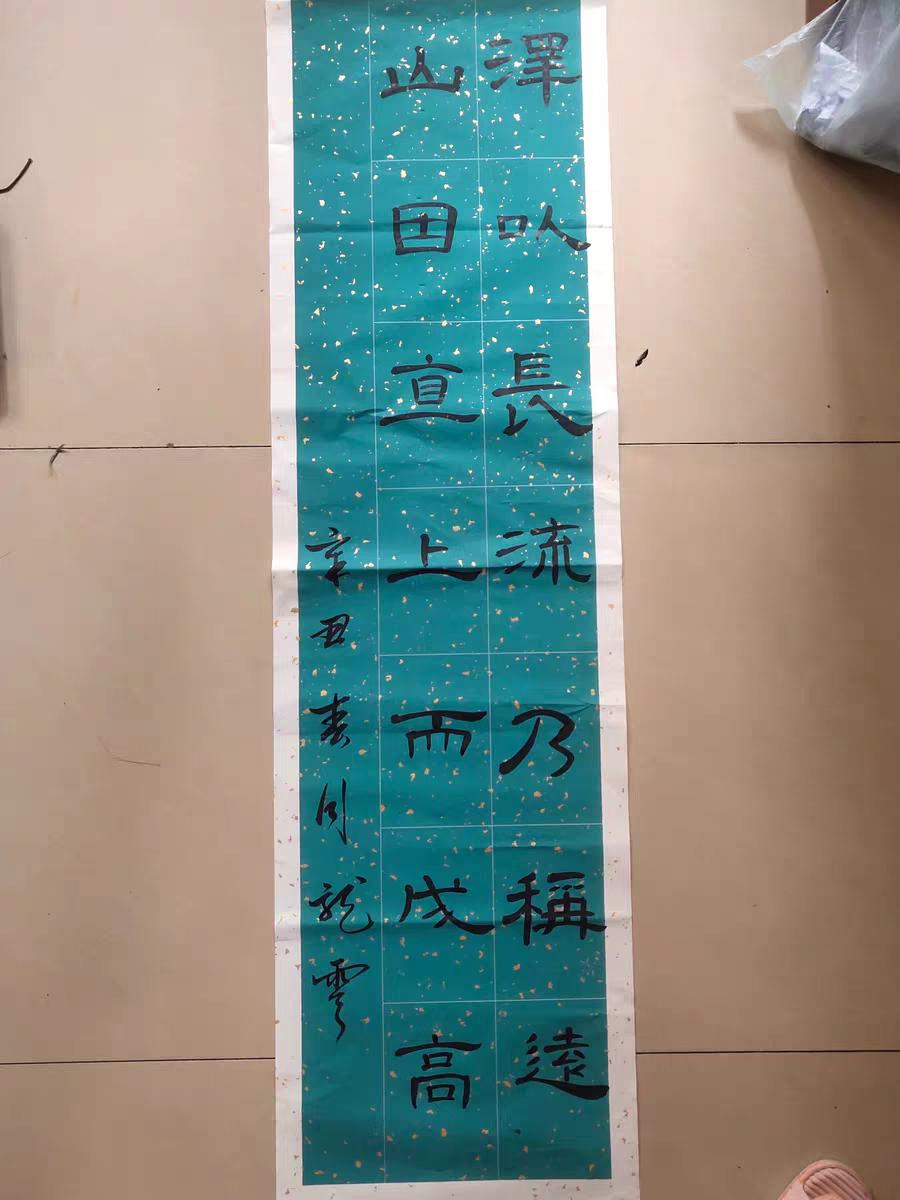 澤以長流乃稱遠
山因直上而成高
辛丑春周龍雲